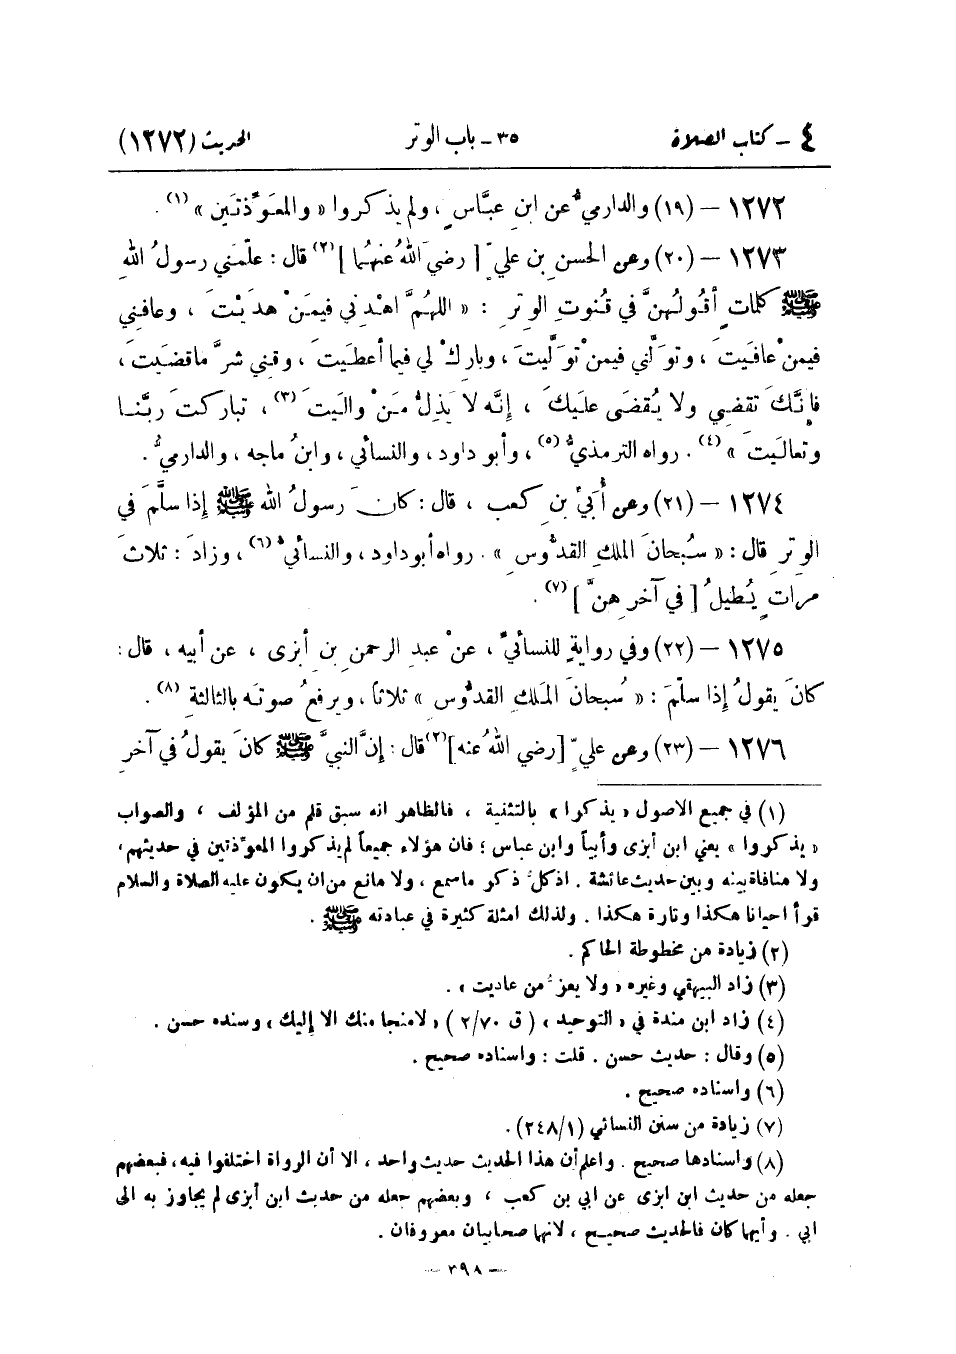 ٤ ـ كتاب الصلاة ٣٥ ـ باب الوتر الحديث (١٢٧٢)
١٢٧٢ – (١٩) والدارميُّ عن ابنِ عبَّاسٍ، ولم يذكروا « والمعَوِّذتَين » (١) .
١٢٧٣ – (٢٠) وعن الحسنِ بن عليٍّ [ رضيَ اللهُ عنهُما ] (٢) قال : علَّمَني رسولُ اللهِ
ﷺ كلماتٍ أقُولُهنَّ في قُنوتِ الوِترِ : « اللهُمَّ اهْدِني فيمَنْ هدَيْتَ ، وعافِني
فيمن ْعافَيتَ ، وتوَلَّني فيمن ْتوَلَّيتَ ، وباركْ لي فيما أعطَيتَ ، وقِني شرَّ ماقضَيتَ ،
فإنَّكَ تقضي ولا يُقضَى عليكَ ، إنَّه لا يَذِلُّ مَنْ واليتَ (٣) ، تباركتَ ربَّنا
وتعالَيتَ » (٤) . رواه الترمذيُّ (٥) ، وأبو داود ، والنسائي ، وابنُ ماجه ، والدارميُّ .
١٢٧٤ – (٢١) وعن أُبَيِّ بنِ كعبٍ ، قال : كانَ رسولُ اللهِ ﷺ إذا سلَّمَ في
الوِترِ قال : « سُبحانَ الملكِ القدُّوسِ » . رواه أبوداود ، والنسائيُّ (٦) ، وزادَ : ثلاثَ
مرَّاتٍ يُطيلُ [ في آخرِهنَّ ] (٧) .
١٢٧٥ – (٢٢) وفي روايةٍ للنسائيِّ ، عنْ عبدِ الرحمنِ بنِ أبزى ، عن أبيه ، قال :
كانَ يقولُ إذا سلَّمَ : « سُبحانَ المَلكِ القدُّوسِ » ثلاثاً ، ويرفعُ صوتَه بالثالثةِ (٨) .
١٢٧٦ – (٢٣) وعن عليٍّ [رضي اللهُ عنه] (٢) قال : إنَّ النبيَّ ﷺ كانَ يقولُ في آخرِ
(١) في جميع الاصول « يذكرا » بالتثنية ، فالظاهر انه سبق قلم من المؤلف ، والصواب
« يذكروا » يعني ابن أبزى وأبياً وابن عباس ؛ فان هؤلاء جميعاً لم يذكروا المعوّذتين في حديثهم ،
ولا منافاة بينه وبين حديث عائشة . اذ كلٌّ ذكر ماسمع ، ولا مانع من ان يكون عليه الصلاة والسلام
قرأ احيانا هكذا وتارة هكذا . ولذلك امثلة كثيرة في عبادته ﷺ .
(٢) زيادة من مخطوطة الحاكم .
(٣) زاد البيهقي وغيره « ولا يعزُّ من عاديت » .
(٤) زاد ابن مندة في « التوحيد » ( ق ٢/٧٠ ) « لامنجا منك الا إليك » وسنده حسن .
(٥) وقال : حديث حسن . قلت : واسناده صحيح .
(٦) واسناده صحيح .
(٧) زيادة من سنن النسائي (٢٤٨/١) .
(٨) واسنادها صحيح . واعلم أن هذا الحديث حديث واحد ، الا أن الرواة اختلفوا فيه ، فبعضهم
جعله من حديث ابن ابزى عن ابي بن كعب ، وبعضهم جعله من حديث ابن أبزى لم يجاوز به الى
ابي . وأيهما كان فالحديث صحيح ، لانهما صحابيان معروفان .
– ٣٩٨ –